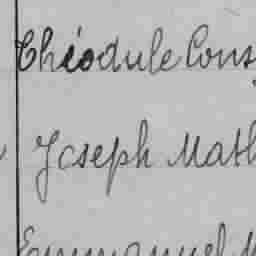 Théodule Cons
Joseph Math
Emmanuel M